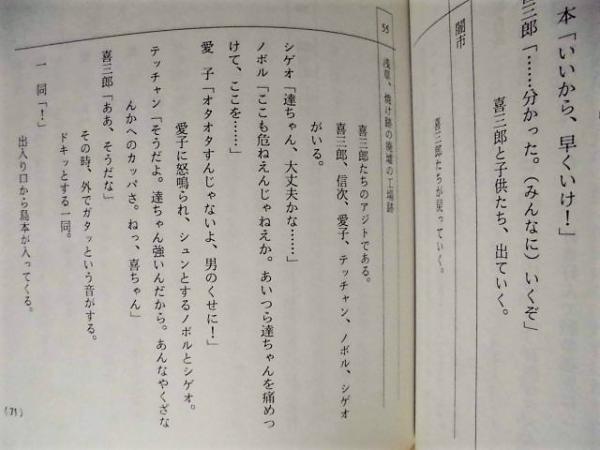 本「いいから、早くいけ！」
三郎「……分かった。（みんなに）いくぞ」
喜三郎と子供たち、出ていく。
闇市
喜三郎たちが戻っていく。
55
浅草、焼け跡の廃墟の工場跡
喜三郎たちのアジトである。
喜三郎、信次、愛子、テッチャン、ノボル、シゲオ
がいる。
シゲオ「達ちゃん、大丈夫かな……」
ノボル「ここも危ねえんじゃねえか。あいつら達ちゃんを痛めつ
けて、ここを……」
愛　子「オタオタすんじゃないよ、男のくせに！」
愛子に怒鳴られ、シュンとするノボルとシゲオ。
テッチャン「そうだよ。達ちゃん強いんだから。あんなやくざな
んかへのカッパさ。ねっ、喜ちゃん」
喜三郎「ああ、そうだな」
その時、外でガタッという音がする。
ドキッとする一同。
一　同「！」
出入り口から島本が入ってくる。
(71)